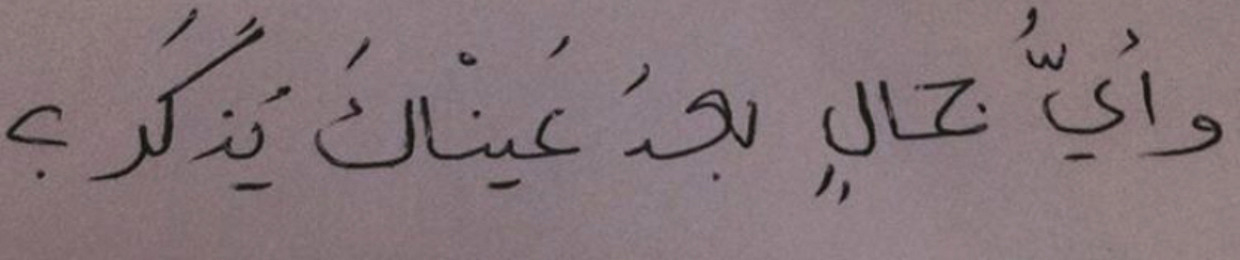 وأُيُّ جمالٍ بعدُ عَينْاكَ يُذكَر ؟